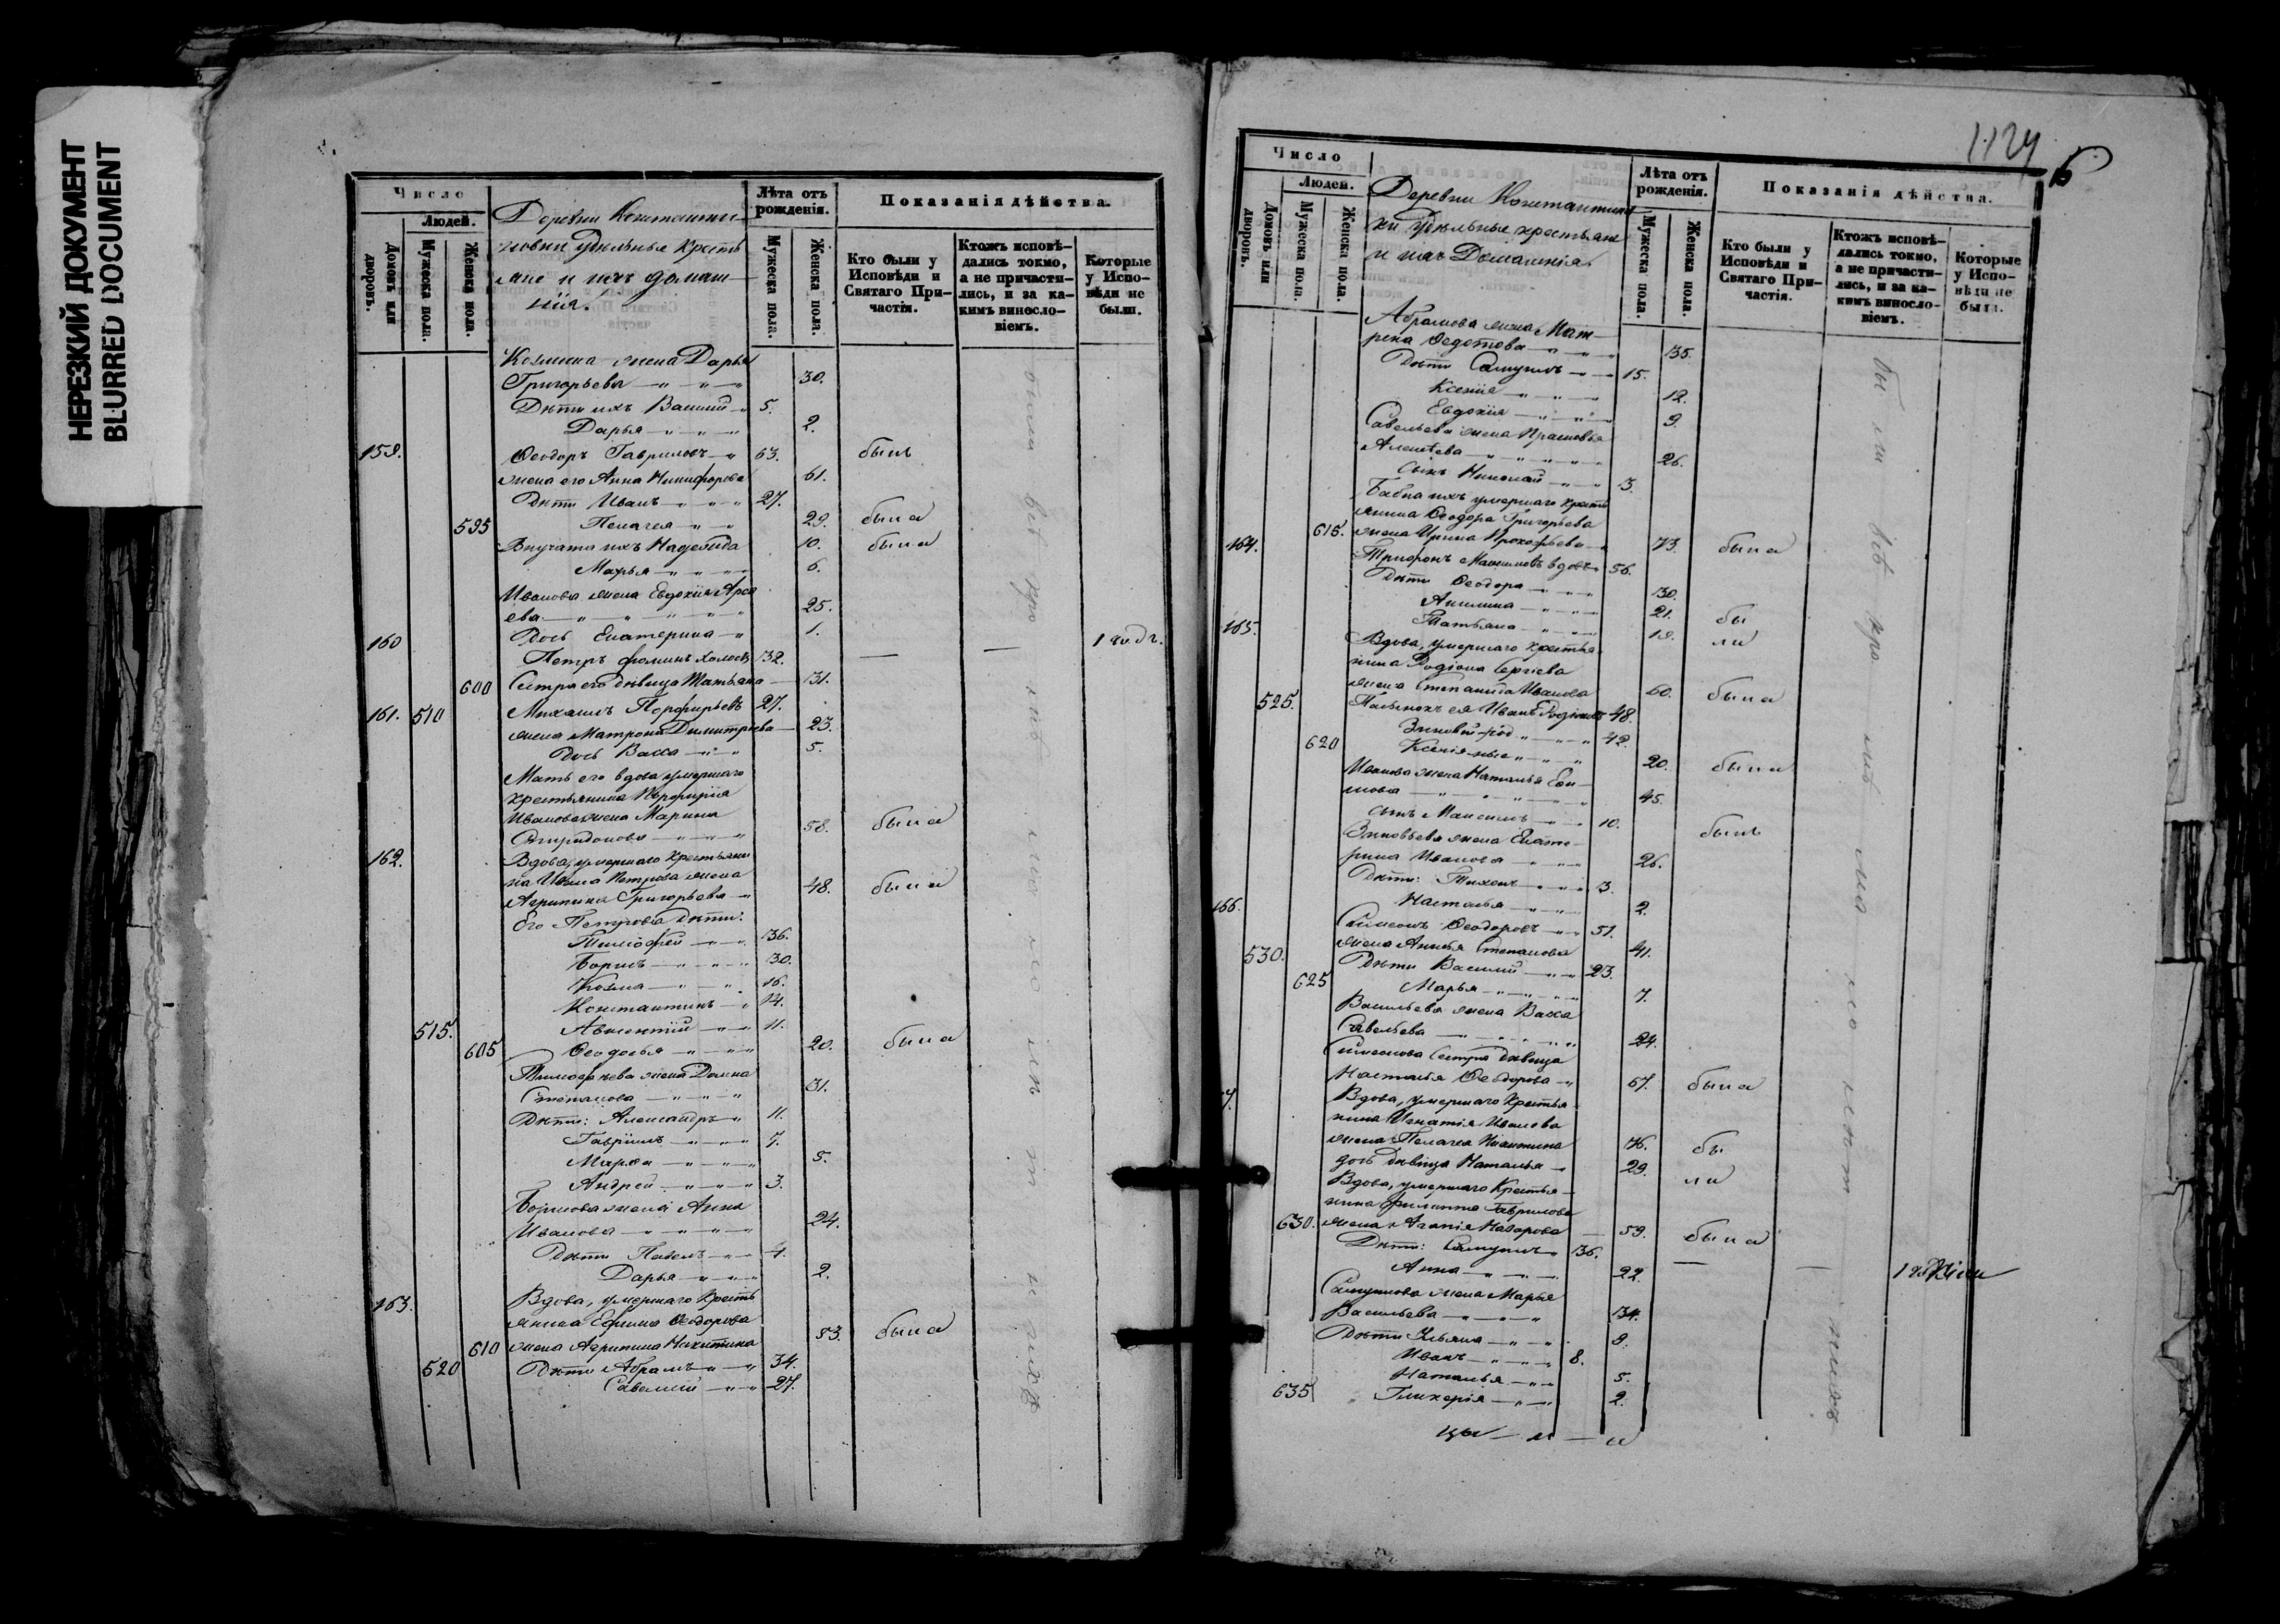 НЕРЕЗКИЙ ДОКУМЕНТ
BLURRED DOCUMENT
Число
Людей.
Домовъ или дворовъ.
Мужеска пола.
Женска пола.
Деревни Константи-
новки удѣльные кресть
яне и ихъ домаш-
нія.
Лѣта отъ рожденія.
Мужеска пола.
Женска пола.
Показанія дѣйства.
Кто были у Исповѣди и Святаго Причастія.
Ктожъ исповѣдались токмо, а не причастились, и за какимъ винословіемъ.
Которые у Исповѣди не были.
Козмина жена Дарья
Григорьева 30.
Дѣти ихъ Василій 5.
Дарья 2.
159. Ѳеодоръ Гавриловъ 63. былъ
жена его Анна Никифорова 61.
Дѣти Иванъ 27.
595 Пелагея 29. была
Внучата ихъ Надежда 10. была
Марья 6.
Иванова жена Евдокія
ева 25.
Дочь Екатерина 1.
160 Петръ Ѳоминъ холостъ 32. — —
600 Сестра его дѣвица Татьяна 31.
161. 510 Михаилъ Порфирьевъ 27.
жена Матрона Димитріева 23.
Дочь Васса 5.
Мать его вдова умершаго
крестьянина Порфирія
Иванова жена Марина
Спиридонова 58. была
162. Вдова, умершаго крестьяни
на Петрова жена
Агрипина Григорьева 48. была
Его Петрова дѣти:
Тимофей 36.
Борисъ 30.
Козма 16.
Константинъ 14.
515. Авксентій 11.
605 Ѳеодосья 20. была
Тимофеева жена Домна
Степанова 31.
Дѣти: Александръ 11.
Гавріилъ 7.
Марѳа 5.
Андрей 3.
Борисова жена Анна
Иванова 24.
Дѣти Павелъ 4.
Дарья 2.
163. Вдова, умершаго кресть
янина Ефима Ѳеодорова
610 жена Агрипина Никитина 53. была
520 Дѣти Абрамъ 34.
Савелій 27.
1124
16
Число
Людей.
Домовъ или дворовъ.
Мужеска пола.
Женска пола.
Деревни Константинов
ки удѣльные крестьяне
и ихъ Домашнія.
Лѣта отъ рожденія.
Мужеска пола.
Женска пола.
Показанія дѣйства.
Кто были у Исповѣди и Святаго Причастія.
Ктожъ исповѣдались токмо, а не причастились, и за какимъ винословіемъ.
Которые у Исповѣди не были.
Абрамова жена Мат-
рена Ѳедотова 35.
Дѣти Самуилъ 15.
Ксенія 12.
Евдокія 9.
Савельева жена Прасковья
Алексѣева 26.
Сынъ Николай 3.
Бабка ихъ умершаго кресть
янина Ѳеодора Григорьева
615. жена Ирина Прокофьева 73. была
164. Трифонъ Максимовъ вдовъ 56.
Дѣти Ѳеодора 30.
Акилина 21. бы
Татьяна 19. ли
165. Вдова, умершаго крестья
нина Родіона Сергіева
жена Степанида Иванова 60. была
525. Пасынокъ ея Иванъ Родіоновъ 48.
Зиновій 42.
620 Ксенія 20. была
Иванова жена Наталья
мова 45.
сынъ Максимъ 10. былъ
Зиновьева жена Екате-
рина Иванова 26.
Дѣти: Тихонъ 3.
Наталья 2.
166. Симеонъ Ѳеодоровъ 51.
жена Степанова 41.
530. Дѣти Василій 23.
625 Марья 7.
Васильева жена Васса
Савельева 24.
Симеонова сестра дѣвица
Наталья Ѳеодорова 67. была
Вдова, умершаго Крестья
нина Игнатія Иванова
жена Пелагея Никитина 76. бы
дочь дѣвица Наталья 29. ли
Вдова, умершаго Крестья-
нина Филиппа Гаврилова
630. жена Агапія Назарова 59. была
Дѣти: Самуилъ 36.
Анна 22. — —
Самуилова жена Марья
Васильева 34.
Дѣти Ульяна 9.
Иванъ 8.
Наталья 5.
635 Гликерія 2.